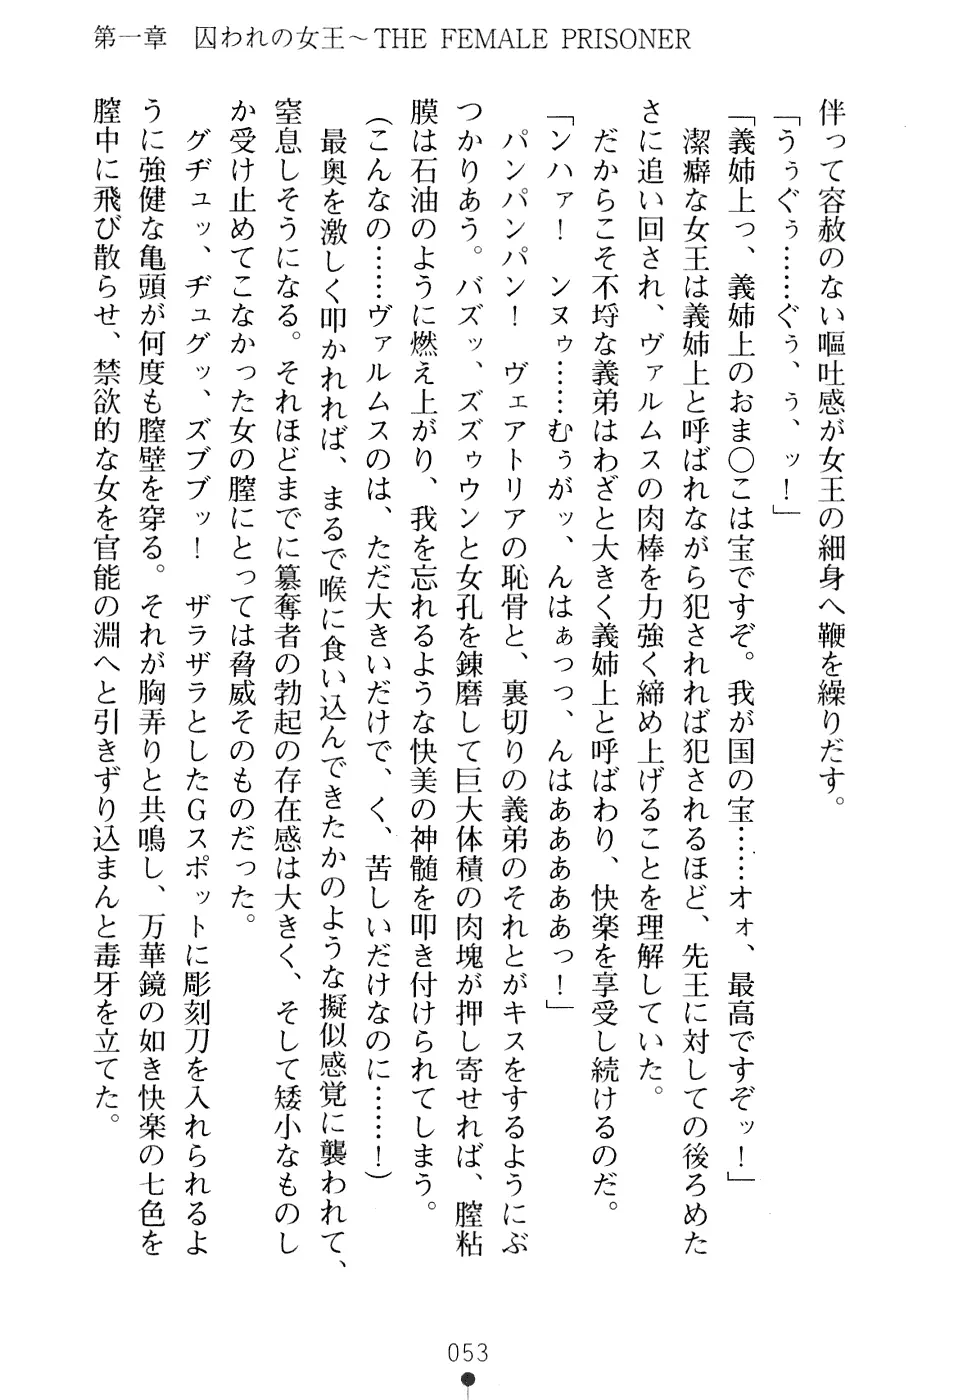 第一章　囚われの女王～THE FEMALE PRISONER
伴って容赦のない嘔吐感が女王の細身へ鞭を繰りだす。
「うぅぐぅ……ぐぅ、ぅ、ッ！」
「義姉上っ、義姉上のおま〇こは宝ですぞ。我が国の宝……オォ、最高ですぞッ！」
　潔癖な女王は義姉上と呼ばれながら犯されれば犯されるほど、先王に対しての後ろめた
さに追い回され、ヴァルムスの肉棒を力強く締め上げることを理解していた。
　だからこそ不埒な義弟はわざと大きく義姉上と呼ばわり、快楽を享受し続けるのだ。
「ンハァ！　ンヌゥ……むぅがッ、んはぁっっ、んはああああぁっ！」
　パンパンパン！　ヴェアトリアの恥骨と、裏切りの義弟のそれとがキスをするようにぶ
つかりあう。バズッ、ズズゥウンと女孔を錬磨して巨大体積の肉塊が押し寄せれば、膣粘
膜は石油のように燃え上がり、我を忘れるような快美の神髄を叩き付けられてしまう。
（こんなの……ヴァルムスのは、ただ大きいだけで、く、苦しいだけなのに……！）
　最奥を激しく叩かれれば、まるで喉に食い込んできたかのような擬似感覚に襲われて、
窒息しそうになる。それほどまでに簒奪者の勃起の存在感は大きく、そして矮小なものし
か受け止めてこなかった女の膣にとっては脅威そのものだった。
　グヂュッ、ヂュグッ、ズブブッ！　ザラザラとしたGスポットに彫刻刀を入れられるよ
うに強健な亀頭が何度も膣壁を穿る。それが胸弄りと共鳴し、万華鏡の如き快楽の七色を
膣中に飛び散らせ、禁欲的な女を官能の淵へと引きずり込まんと毒牙を立てた。
053